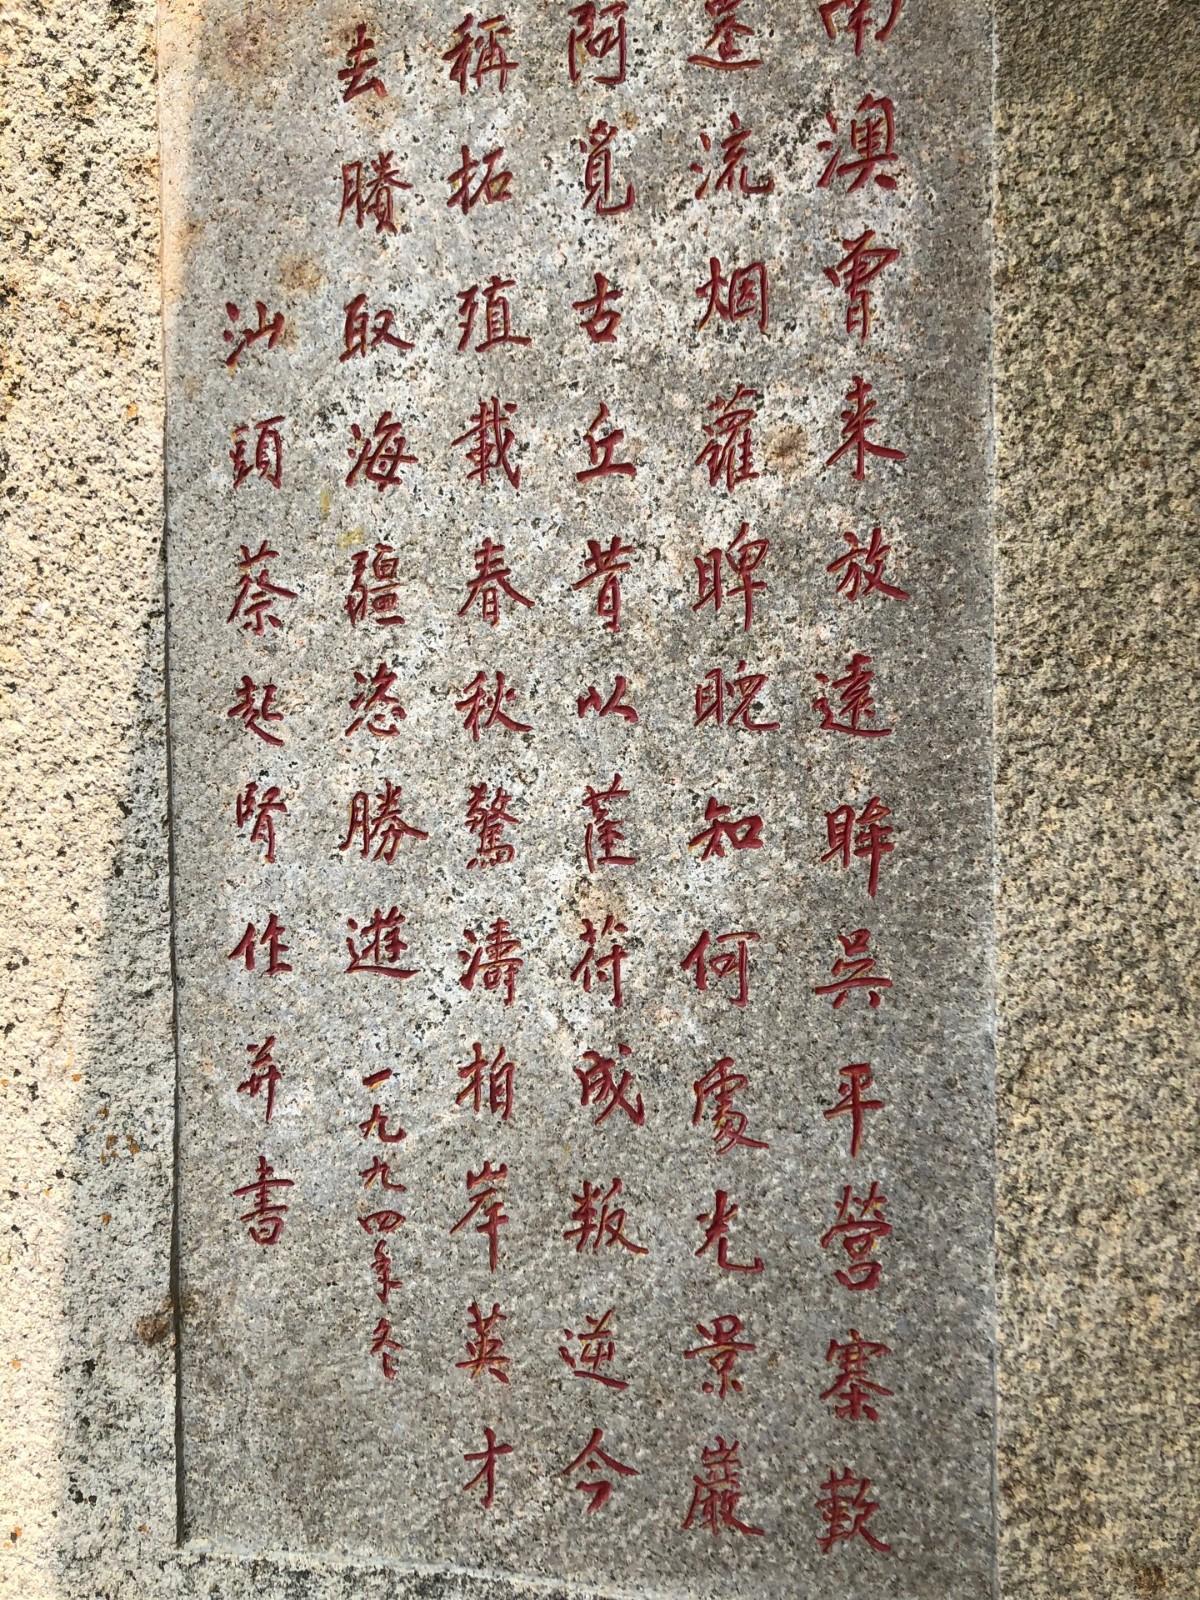 南澳曾来放遠眸吳平營寨歎
墓流烟蘿睥睨知何處光景巖
阿覓古丘昔以萑苻成叛逆今
稱拓殖載春秋驚濤拍岸英才
去賸取海疆恣勝遊一九九四年冬
汕頭蔡起賢作并書